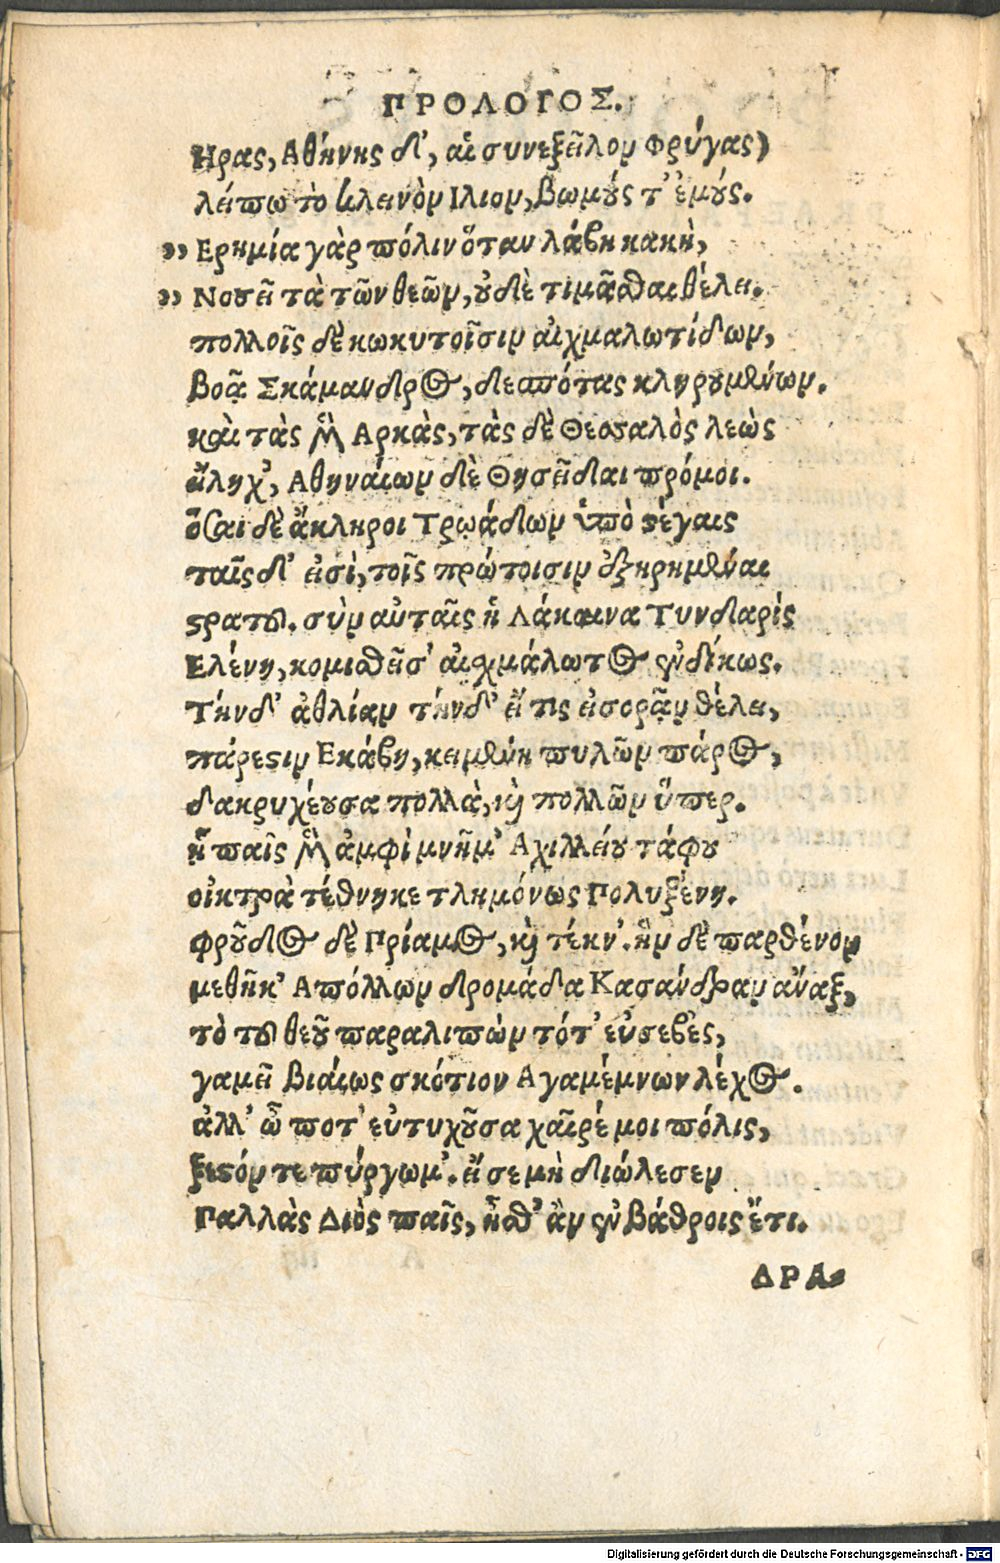 ΠΡΟΛΟΓΟΣ.
Ηρας, Αθήνης δ', αἳ συνεξεῖλον Φρύγας)
λείπω τὸ κλεινὸν Ιλιον, βωμούς τ' ἐμούς.
„ Ερημία γὰρ πόλιν ὅταν λάβη κακὴ,
„ Νοσεῖ τὰ τῶν θεῶν, οὐδὲ τιμᾶσθαι θέλει.
πολλοῖς δὲ κωκυτοῖσιν αἰχμαλωτίδων,
βοᾷ Σκάμανδρος, δεσπότας κληρουμένων.
καὶ τὰς μὲν Αρκὰς, τὰς δὲ Θεσσαλὸς λεὼς
εἴληχ', Αθηναίων δὲ Θησεῖδαι πρόμοι.
ὅσαι δὲ ἄκληροι Τρωάδων ὑπὸ στέγαις
ταῖς δ' εἰσὶ, τοῖς πρώτοισιν ἐξῃρημέναι
στρατοῦ. σὺν αὐταῖς ἡ Λάκαινα Τυνδαρίς
Ελένη, κομισθεῖσ' αἰχμάλωτος ἐνδίκως.
Τήνδ' ἀθλίαν τήνδ' εἴ τις εἰσορᾷν θέλει,
πάρεστιν Εκάβη, κειμένη πυλῶν πάρος,
δακρυχέουσα πολλὰ, καὶ πολλῶν ὕπερ.
ᾗ παῖς μὲν ἀμφὶ μνῆμ' Αχιλλείου τάφου
οἰκτρὰ τέθνηκε τλημόνως Πολυξένη.
φροῦδος δὲ Πρίαμος, καὶ τέκν'. ἣν δὲ παρθένον
μεθῆκ' Απόλλων δρομάδα Κασάνδραν ἄναξ,
τὸ τοῦ θεοῦ παραλιπὼν τότ' εὐσεβές,
γαμεῖ βιαίως σκότιον Αγαμέμνων λέχος.
ἀλλ' ὦ ποτ' εὐτυχοῦσα χαῖρέ μοι πόλις,
ξεστόν τε πύργωμ'. εἴ σε μὴ διώλεσεν
Παλλὰς Διὸς παῖς, ἦσθ' ἂν ἐν βάθροις ἔτι.
ΔΡΑ-
Digitalisierung gefördert durch die Deutsche Forschungsgemeinschaft - DFG